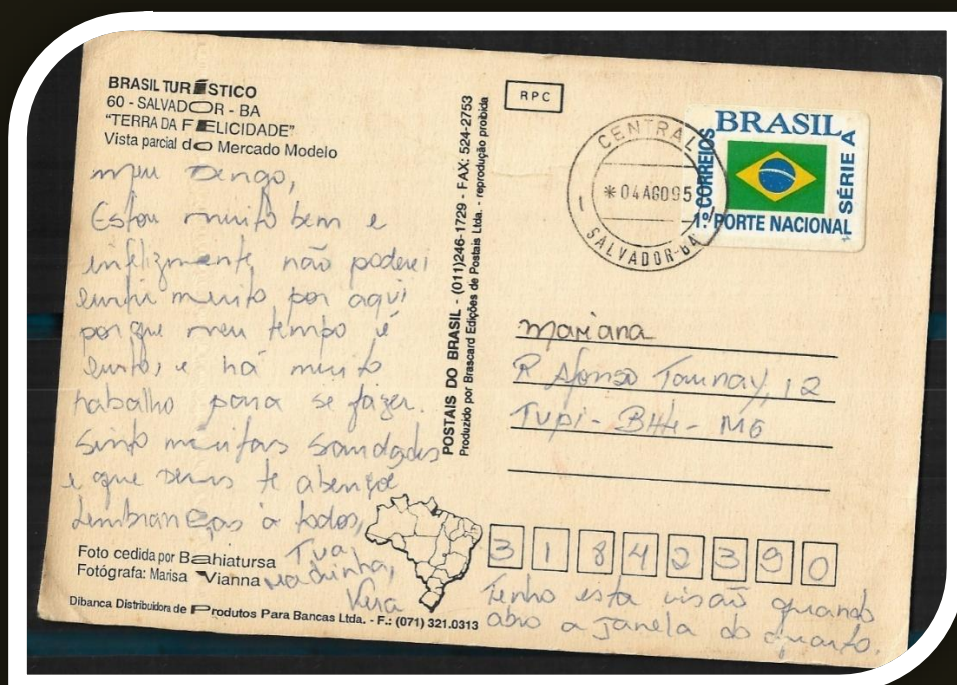 BRASIL TURÍSTICO
60 - SALVADOR - BA
"TERRA DA FELICIDADE"
Vista parcial do Mercado Modelo
meu Dengo,
Estou muito bem e
infelizmente, não poderei
curtir muito por aqui
porque meu tempo é
curto, e há muito
trabalho para se fazer.
Sinto muitas saudades
e que Deus te abençoe
Lembranças à todos,
Tua
madrinha,
Vera
Foto cedida por Bahiatursa
Fotógrafa: Marisa Vianna
Dibanca Distribuidora de Produtos Para Bancas Ltda. - F.: (071) 321.0313
POSTAIS DO BRASIL - (011)246-1729 - FAX: 524-2753
Produzido por Brascard Edições de Postais Ltda. - reprodução proibida
RPC
CENTRAL
*04AGO95
SALVADOR-BA
BRASIL
CORREIOS
SÉRIE A
1º PORTE NACIONAL
Mariana
R Afonso Taunay, 12
Tupi - BHte - MG
31842390
Tenho esta visão quando
abro a janela do quarto.